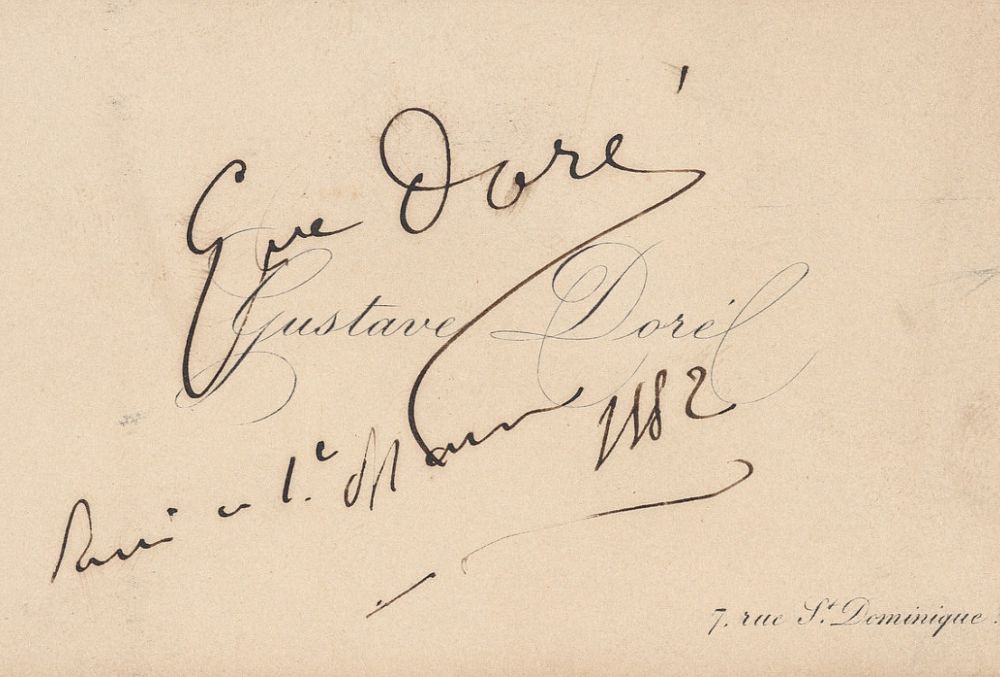 Gve Doré
Gustave Doré
Paris ce 1er Mars 1882
7. rue St. Dominique.